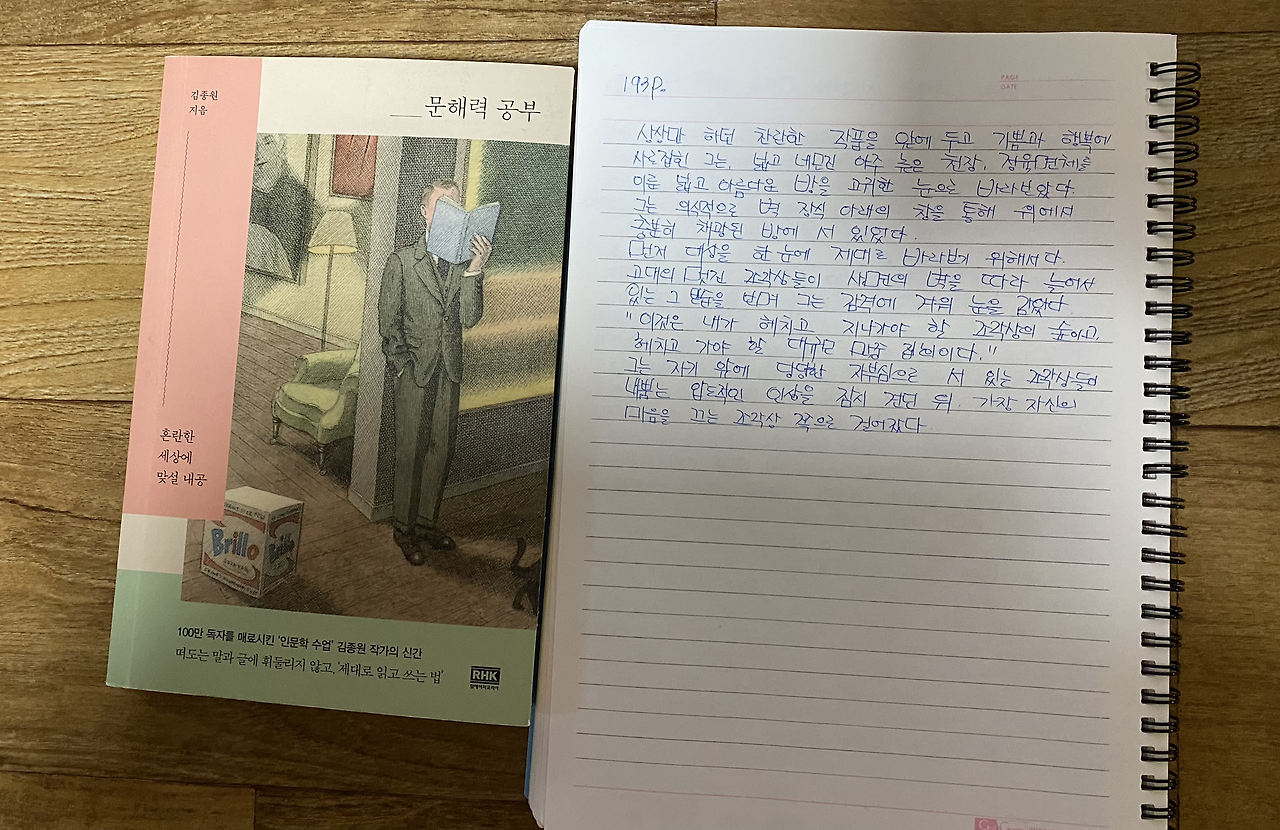 김종원
지음
문해력 공부
혼란한
세상에
맞설 내공
Brillo
Brillo
100만 독자를 매료시킨 '인문학 수업' 김종원 작가의 신간
떠도는 말과 글에 휘둘리지 않고, '제대로 읽고 쓰는 법'
RHK
알에이치코리아
PAGE
DATE
193p.
상상만 하던 찬란한 작품을 앞에 두고 기쁨과 행복에
사로잡힌 그는, 넓고 네모진 아주 높은 천장, 정육면체를
이룬 넓고 아름다운 방을 고귀한 눈으로 바라보았다.
그는 의식적으로 벽 장식 아래의 창을 통해 위에서
충분히 채광된 방에 서 있었다.
먼저 대상을 한 눈에 제대로 바라보기 위해서다.
고대의 멋진 조각상들이 사면의 벽을 따라 늘어서
있는 그 모습을 보며 그는 감격에 겨워 눈을 감았다.
"이것은 내가 헤치고 지나가야 할 조각상의 숲이고,
헤치고 가야 할 대규모 군중 집회이다."
그는 자기 앞에 당당한 자부심으로 서 있는 조각상들이
내뿜는 압도적인 인상을 잠시 견딘 뒤, 가장 자신의
마음을 끄는 조각상 쪽으로 걸어갔다